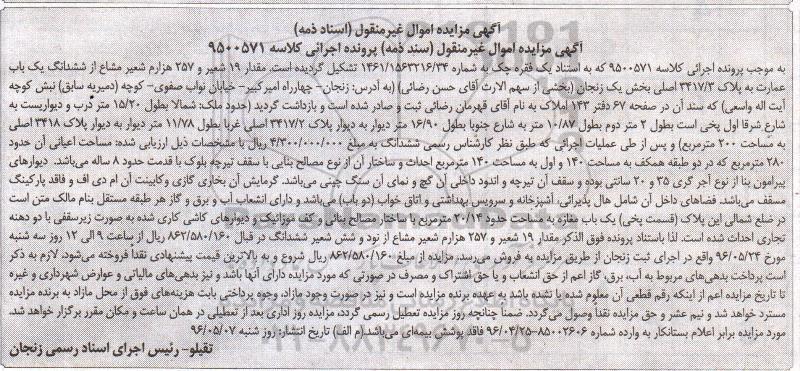 آگهی مزایده اموال غیرمنقول (اسناد ذمه)
آگهی مزایده اموال غیرمنقول (سند ذمه) پرونده اجرائی کلاسه ۹۵۰۰۵۷۱
به موجب پرونده اجرائی کلاسه ۹۵۰۰۵۷۱ که به استناد یک فقره چک به شماره ۱۴۶۱/۱۵۶۳۲۱۶/۳۴ تشکیل گردیده است. مقدار ۱۹ شعیر و ۲۵۷ هزارم شعیر مشاع از ششدانگ یک باب
عمارت به پلاک ۳۴۱۷/۳ اصلی بخش یک زنجان (بخشی از سهم الارث آقای حسن رضائی) (به آدرس: زنجان- چهارراه امیرکبیر- خیابان نواب صفوی- کوچه (دمیریه سابق) نبش کوچه
آیت اله واسعی) که سند آن در صفحه ۶۷ دفتر ۱۴۳ املاک به نام آقای قهرمان رضائی ثبت و صادر شده است و بازداشت گردید (حدود ملک: شمالا بطول ۱۵/۲۰ متر درب و دیواریست به
شارع شرقا اول پخی است بطول ۲ متر دوم بطول ۱۰/۸۷ متر به شارع جنوبا بطول ۱۶/۹۰ متر دیوار به دیوار پلاک ۳۴۱۷/۲ اصلی غربا بطول ۱۱/۷۸ متر دیوار به دیوار پلاک ۳۴۱۸ اصلی
به مساحت ۲۰۰ مترمربع) و پس از طی عملیات اجرائی که طبق نظر کارشناس رسمی ششدانگ به مبلغ ۴/۳۰۰/۰۰۰/۰۰۰ ریال با مشخصات ذیل ارزیابی شده: مساحت اعیانی آن حدود
۲۸۰ مترمربع که در دو طبقه همکف به مساحت ۱۴۰ و اول به مساحت ۱۴۰ مترمربع احداث و ساختار آن از نوع مصالح بنایی با سقف تیرچه بلوک با قدمت حدود ۸ ساله می‌باشد. دیوارهای
پیرامون بنا از نوع آجر گری ۳۵ و ۲۰ سانتی بوده و سقف آن تیرچه و اندود داخلی آن گچ و نمای آن سنگ چینی می‌باشد. گرمایش آن بخاری گازی وکابینت آن ام دی اف و فاقد پارکینگ
مسقف می‌باشد. فضاهای داخل آن شامل هال پذیرائی، آشپزخانه و سرویس بهداشتی و اتاق خواب (دو باب) می‌باشد و دارای انشعاب آب و برق و گاز هر طبقه مستقل بنام مالک متن است
در ضلع شمالی این پلاک (قسمت پخی) یک باب مغازه به مساحت حدود ۲۰/۱۴ مترمربع با ساختار مصالح بنائی و کف موزائیک و دیوارهای کاشی کاری شده به صورت زیرسقفی با دو دهنه
تجاری احداث شده است. لذا باستناد پرونده فوق الذکر مقدار ۱۹ شعیر و ۲۵۷ هزارم شعیر مشاع از نود و شش شعیر ششدانگ در قبال ۸۶۲/۵۸۰/۱۶۰ ریال از ساعت ۹ الی ۱۲ روز سه شنبه
مورخ ۹۶/۰۵/۲۴ واقع در اجرای ثبت زنجان از طریق مزایده به فروش می‌رسد. مزایده از مبلغ ۸۶۲/۵۸۰/۱۶۰ ریال شروع و به بالاترین قیمت پیشنهادی نقدا فروخته می‌شود. لازم به ذکر
است پرداخت بدهی‌های مربوط به آب، برق، گاز اعم از حق انشعاب و یا حق اشتراک و مصرف در صورتی که مورد مزایده دارای آنها باشد و نیز بدهی‌های مالیاتی و عوارض شهرداری و غیره
تا تاریخ مزایده اعم از اینکه رقم قطعی آن معلوم شده یا نشده باشد به عهده برنده مزایده است و نیز در صورت وجود مازاد، وجوه پرداختی بابت هزینه‌های فوق از محل مازاد به برنده مزایده
مسترد خواهد شد و نیم عشر و حق مزایده نقدا وصول می‌گردد. ضمناً چنانچه روز مزایده تعطیل رسمی گردد، مزایده روز اداری بعد از تعطیلی در همان ساعت و مکان مقرر برگزار خواهد شد.
مورد مزایده برابر اعلام بستانکار به وارده شماره ۸۵۰۰۲۶۰۶-۹۶/۰۴/۲۵ فاقد پوشش بیمه‌ای می‌باشد. (م الف) تاریخ انتشار: روز شنبه ۹۶/۰۵/۰۷
تقیلو- رئیس اجرای اسناد رسمی زنجان